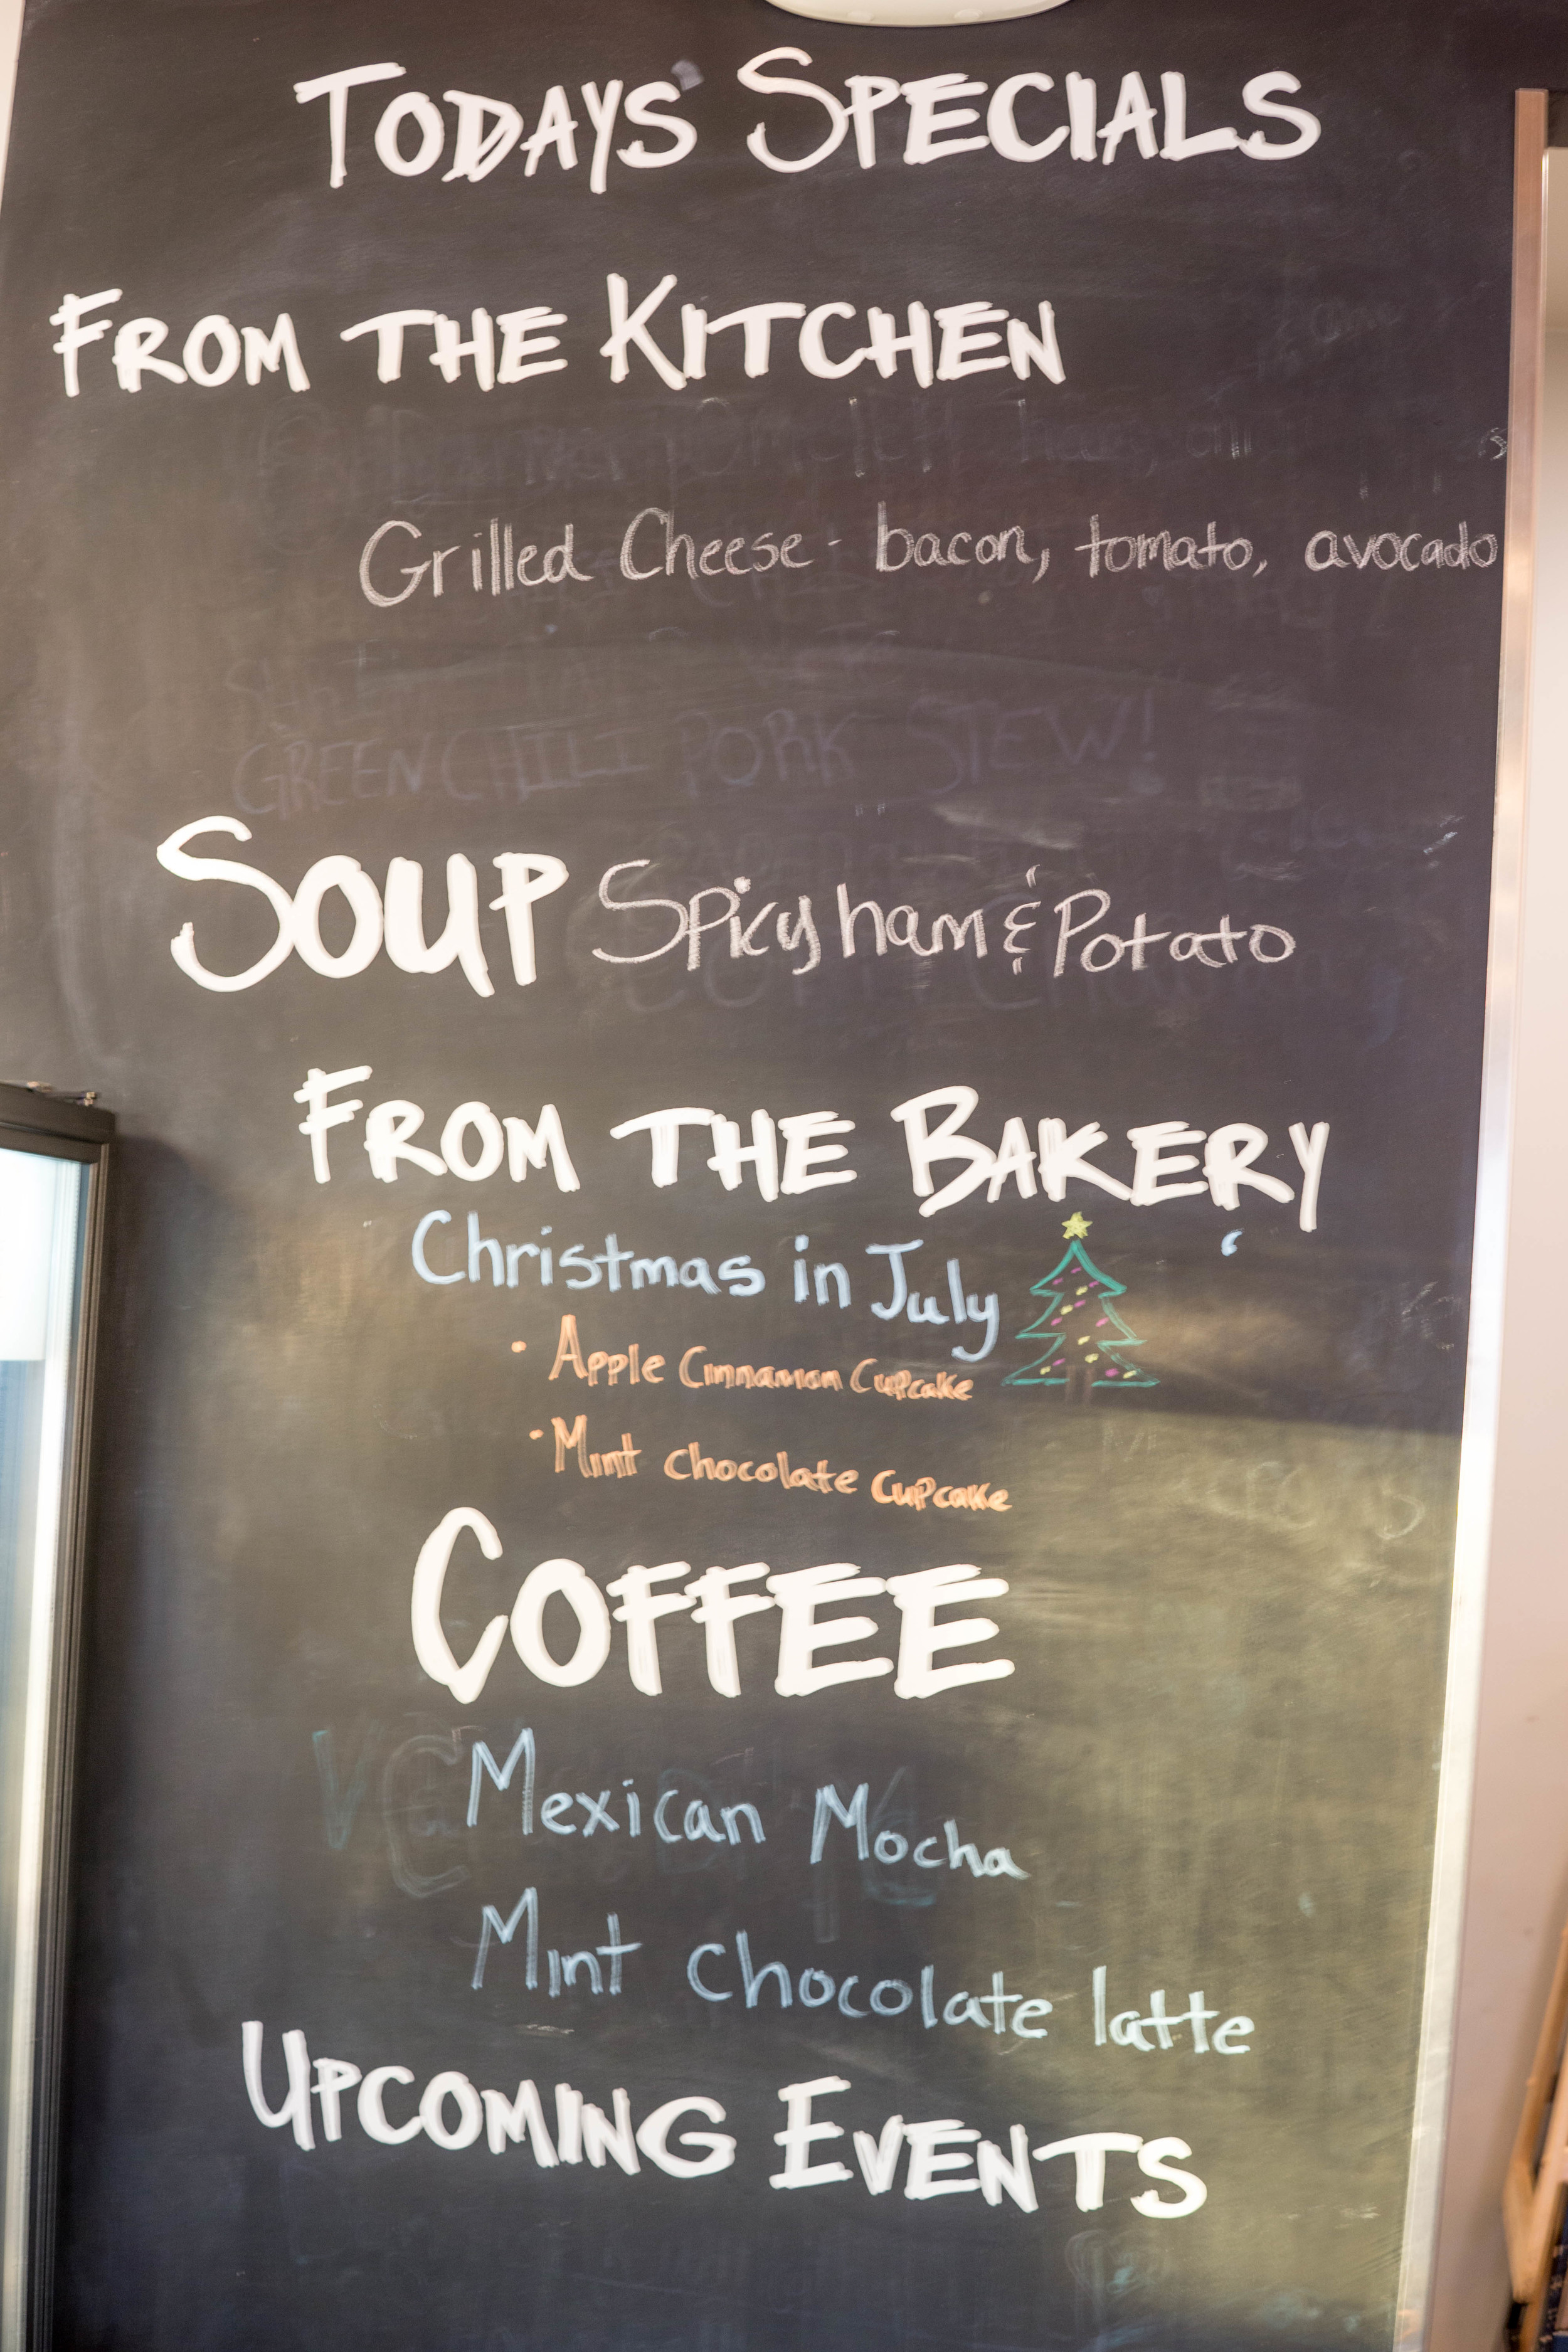 TODAYS' SPECIALS
FROM THE KITCHEN
Grilled Cheese - bacon, tomato, avocado
GREEN CHILI PORK STEW!
SOUP Spicy ham & Potato
FROM THE BAKERY
Christmas in July
· Apple Cinnamon Cupcake
· Mint chocolate cupcake
COFFEE
Mexican Mocha
Mint chocolate latte
UPCOMING EVENTS